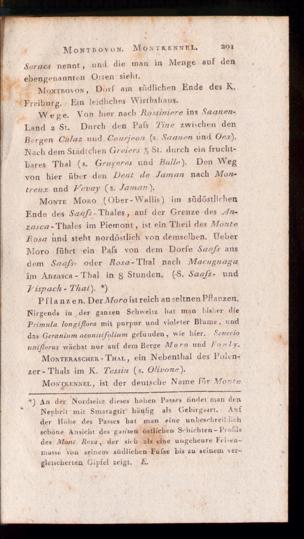 MONTBOVON. MONTKENNEL. 201
Soracs nennt, und die man in Menge auf den
ebengenannten Orten sieht.
MONTBOVON, Dorf am südlichen Ende des K.
Freiburg. Ein leidliches Wirthshaus.
Wege. Von hier nach Rossiniere ins Saanen-
Land 2 St. Durch den Paſs Tine zwischen den
Bergen Culaz und Courjeon (s. Saanen und Oex).
Nach dem Städtchen Greiers 3 St. durch ein frucht-
bares Thal (s. Gruyeres und Bulle). Den Weg
von hier über den Dent de Jaman nach Mon-
treux und Vevay (s. Jaman).
MONTE MORO (Ober-Wallis) im südöstlichen
Ende des Saaſs-Thales, auf der Grenze des An-
zasca-Thales im Piemont, ist ein Theil des Monte
Rosa und steht nordöstlich von demselben. Ueber
Moro führt ein Paſs von dem Dorfe Saaſs aus
dem Saaſs- oder Rosa-Thal nach Macugnaga
im Anzasca-Thal in 8 Stunden. (S. Saaſs- und
Vispach-Thal). *)
Pflanzen. Der Moro ist reich an seltnen Pflanzen.
Nirgends in der ganzen Schweitz hat man bisher die
Primula longiflora mit purpur und violeter Blume, und
das Geranium aconitifolium gefunden, wie hier. Senecio
uniflorus wächst nur auf dem Berge Moro und Fouly.
MONTERASCHER-THAL, ein Nebenthal des Polen-
zer-Thals im K. Tessin (s. Olivone).
MONTKENNEL, ist der deutsche Name für Monte
*) An der Nordseite dieses hohen Passes findet man den
Nephrit mit Smaragdit häufig als Gebirgsart. Auf
der Höhe des Passes hat man eine unbeschreiblich
schöne Ansicht des ganzen östlichen Schichten-Profils
des Mont Rosa, der sich als eine ungeheure Felsen-
masse von seinem südlichen Fuſse bis zu seinem ver-
gletscherten Gipfel zeigt. E.